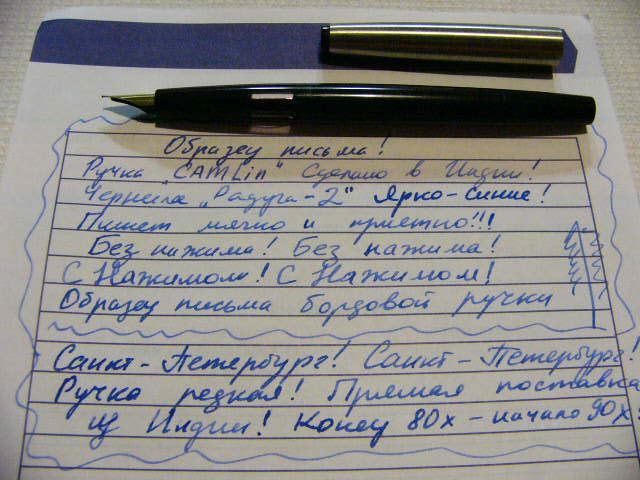 Образец письма!
Ручка "CAMLin" Сделано в Индии!
Чернила "Радуга-2" Ярко-синие!
Пишет мягко и приятно!!!
Без нажима! Без нажима!
С Нажимом! С Нажимом!
Образец письма бордовой ручки
Санкт-Петербург! Санкт-Петербург!
Ручка редкая! Прямая поставка
из Индии! Конец 80х - начало 90х